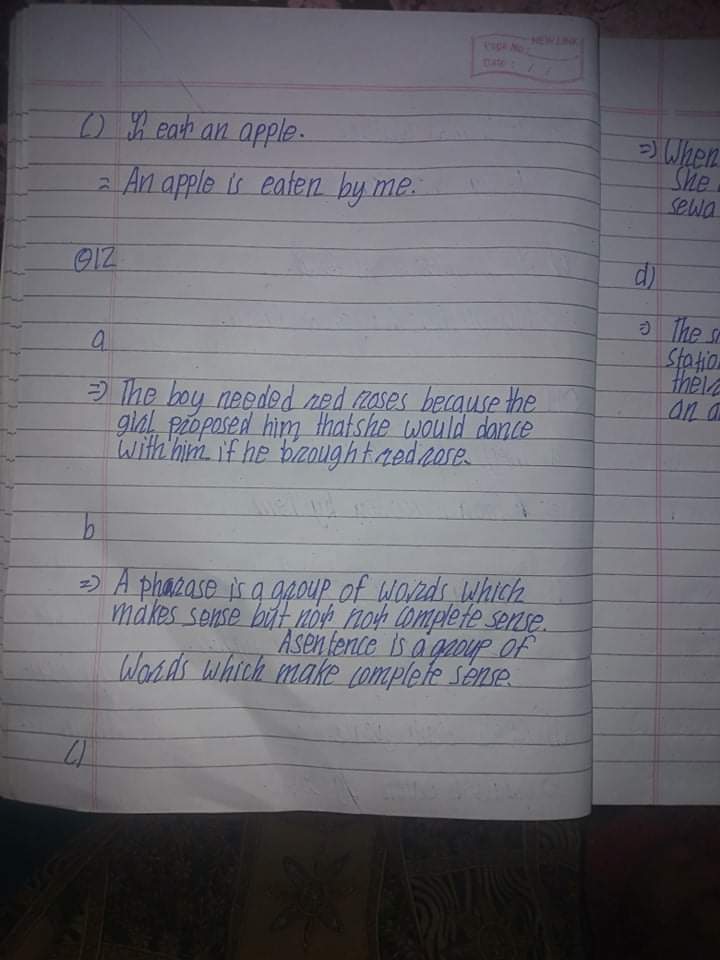 NEW LINK
PAGE NO.:
DATE: / /
C) I eat an apple.
= An apple is eaten by me.
Q12
a
=> The boy needed red roses because the
girl proposed him that she would dance
with him if he brought red rose.
b
=> A pharase is a group of words which
makes sense but not not complete sense.
A sentence is a group of
words which make complete sense.
C)
=> When
She
sewa
d)
=> The s
statio
an a